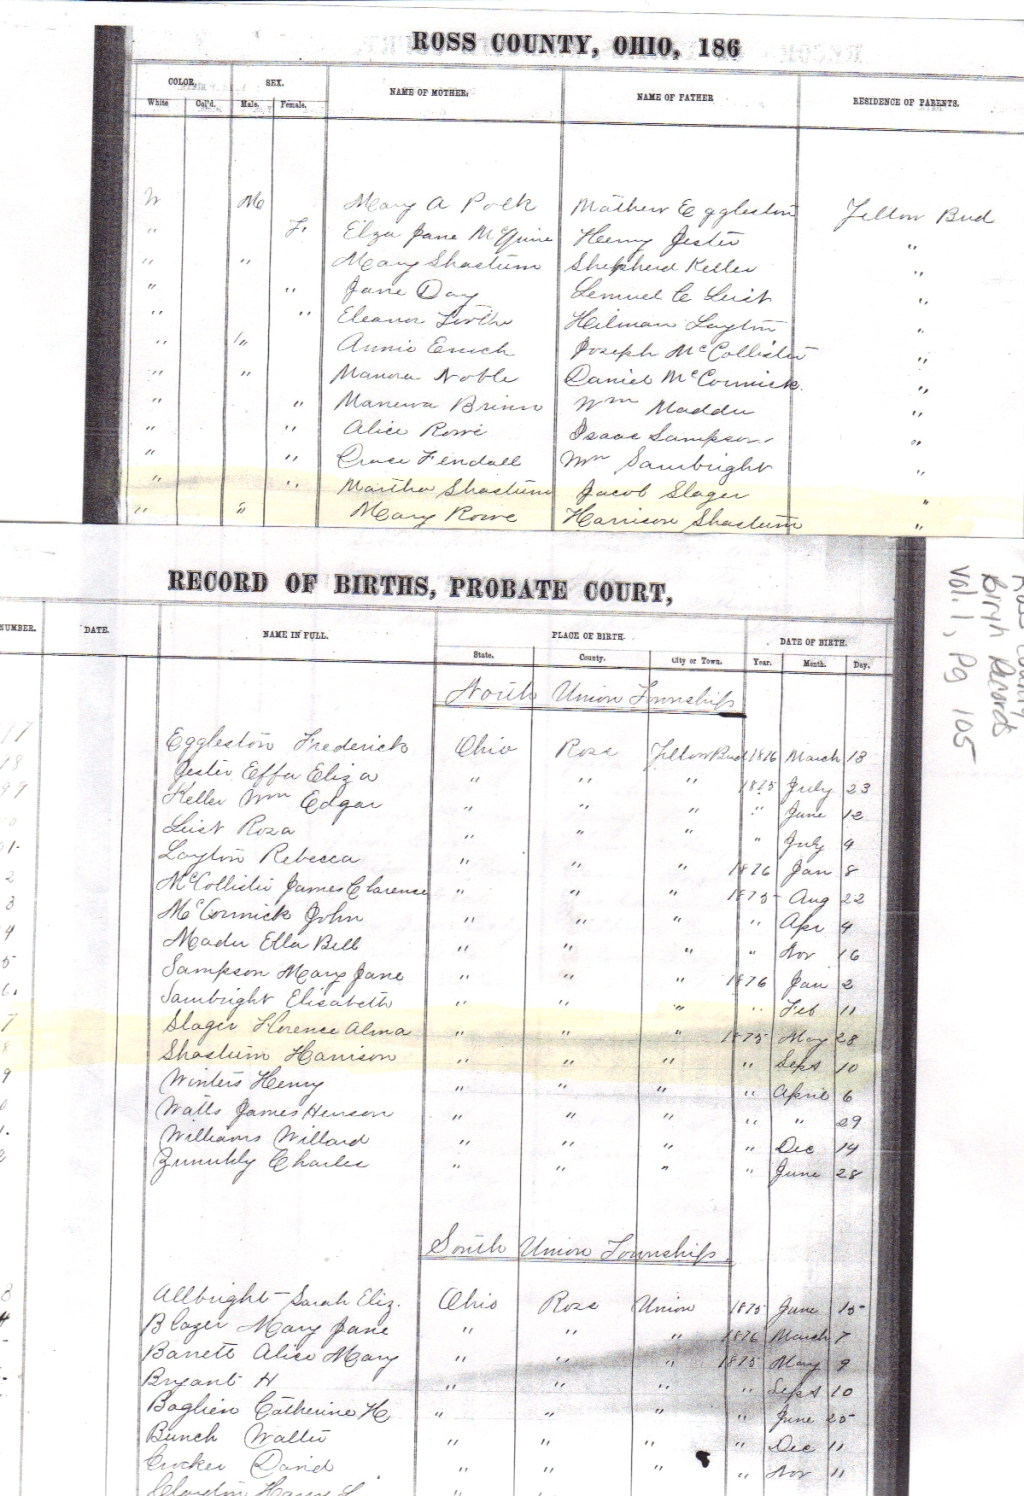 ROSS COUNTY, OHIO, 186
COLOR. SEX. NAME OF MOTHER. NAME OF FATHER RESIDENCE OF PARENTS.
White Col'd. Male. Female.
W M Mary A Polk Mathew Eggleston Yellow Bud
" F. Eliza Jane McGuire Henry Jester "
" " Mary Shastum Shepherd Keller "
" " Jane Day Lemuel C Leist "
" " Eleanor Hilman Layton "
" " Annie Enoch Joseph McCollister "
" " Manora Noble Daniel McCormick "
" " Manerva Brinn Wm Madder "
" " Alice Rowe Isaac Sampson "
" " Grace Fendall Wm Sambright "
" " Martha Shastum Jacob Slager "
" " Mary Rowe Harrison Shastum "
RECORD OF BIRTHS, PROBATE COURT,
NUMBER. DATE. NAME IN FULL. PLACE OF BIRTH. DATE OF BIRTH.
State. County. City or Town. Year. Month. Day.
North Union Township
Eggleston Frederick Ohio Ross Yellow Bud 1876 March 13
Jester Effa Eliza " " " 1875 July 23
Keller Wm Edgar " " " " June 12
Leist Roza " " " " July 9
Layton Rebecca " " " 1876 Jan 8
McCollister James Clarence " " " 1875 Aug 22
McCormick John " " " " Apr 4
Mader Ella Bell " " " " Nov 16
Sampson Mary Jane " " " 1876 Jan 2
Sambright Elizabeth " " " " Feb 11
Slager Florence Alma " " " 1875 May 28
Shastum Harrison " " " " Sept 10
Winters Henry " " " " April 6
Watts James Henson " " " " " 29
Williams Willard " " " " Dec 14
Charles " " " " June 28
South Union Township
Allbright Sarah Eliz. Ohio Ross Union 1875 June 15
Blazer Mary Jane " " " 1876 March 7
Barrett Alice Mary " " " 1875 May 9
Bryant H " " " " Sept 10
Catherine H " " " " June 25
Bunch Walter " " " " Dec 11
Crocker David " " " " Nov 11
Birth Records
Vol. 1, Pg 105